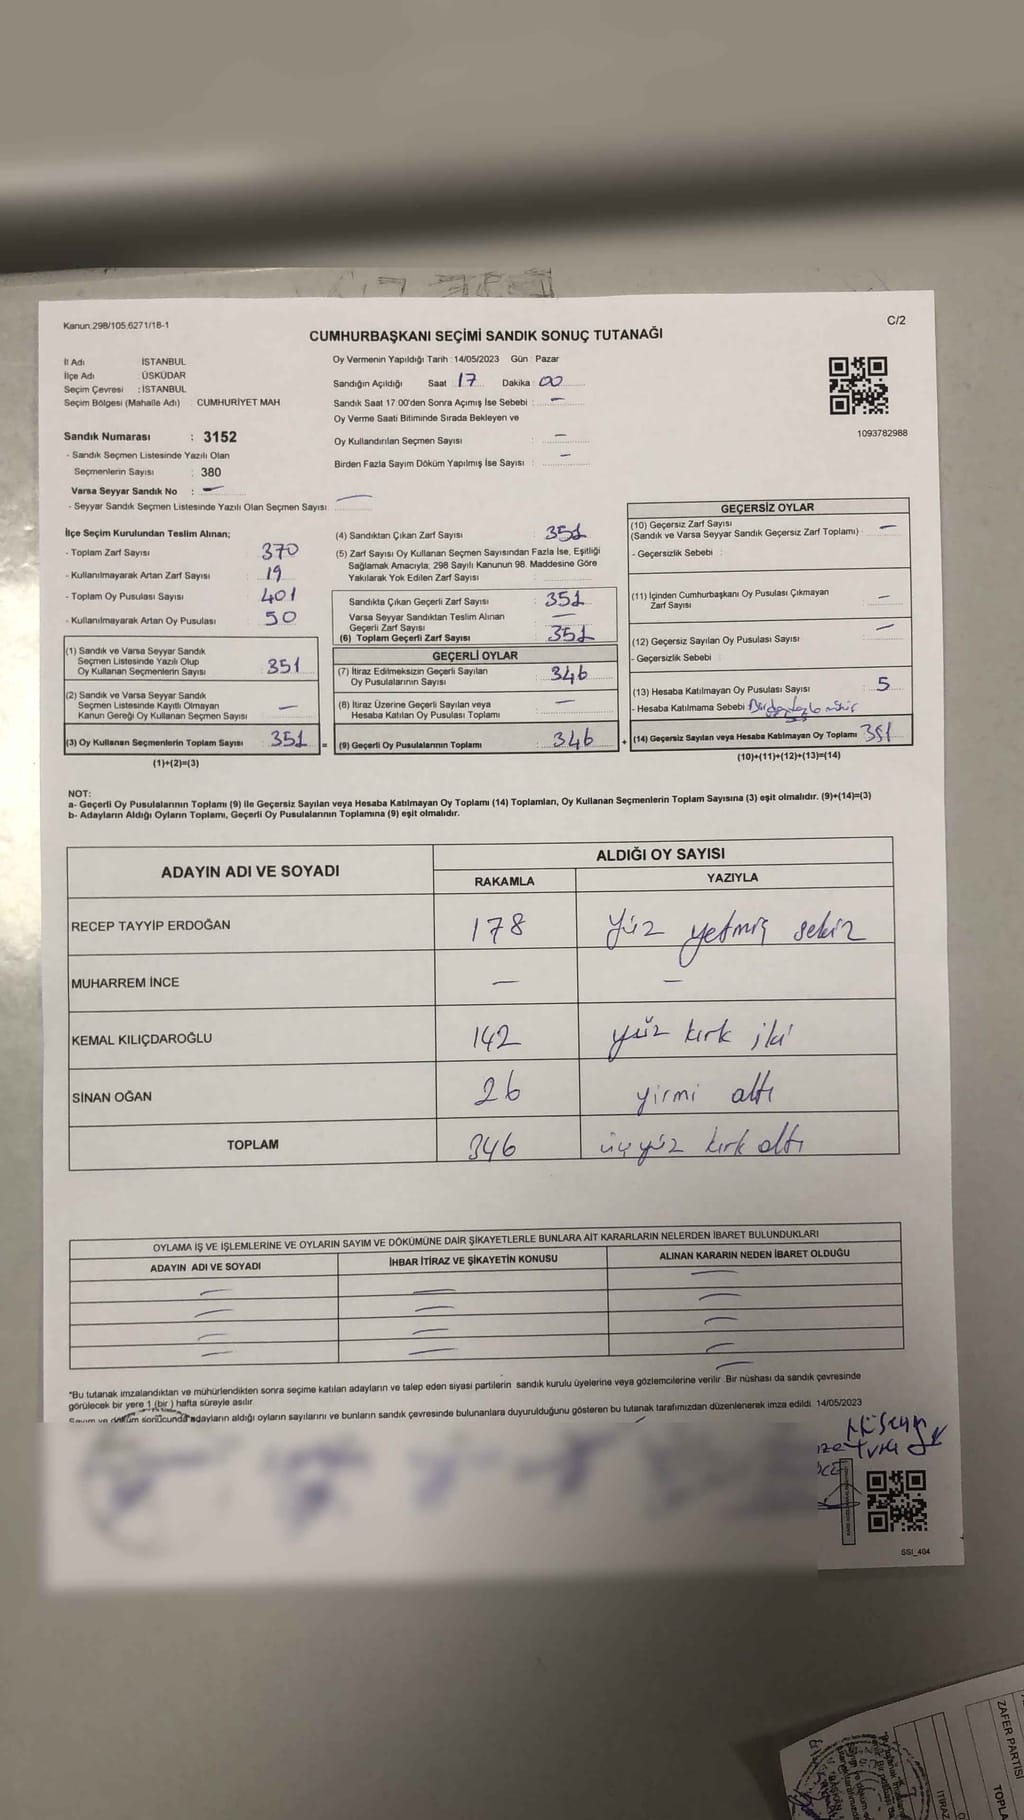 Kanun:298/105,6271/18-1
C/2
CUMHURBAŞKANI SEÇİMİ SANDIK SONUÇ TUTANAĞI
İl Adı : İSTANBUL
İlçe Adı : ÜSKÜDAR
Seçim Çevresi : İSTANBUL
Seçim Bölgesi (Mahalle Adı) : CUMHURİYET MAH
Sandık Numarası : 3152
- Sandık Seçmen Listesinde Yazılı Olan
Seçmenlerin Sayısı : 380
Varsa Seyyar Sandık No : —
- Seyyar Sandık Seçmen Listesinde Yazılı Olan Seçmen Sayısı : —
Oy Vermenin Yapıldığı Tarih : 14/05/2023 Gün : Pazar
Sandığın Açıldığı Saat : 17 Dakika : 00
Sandık Saat 17:00'den Sonra Açımış İse Sebebi : —
Oy Verme Saati Bitiminde Sırada Bekleyen ve
Oy Kullandırılan Seçmen Sayısı : —
Birden Fazla Sayım Döküm Yapılmış İse Sayısı : —
1093782988
İlçe Seçim Kurulundan Teslim Alınan;
- Toplam Zarf Sayısı : 370
- Kullanılmayarak Artan Zarf Sayısı : 19
- Toplam Oy Pusulası Sayısı : 401
- Kullanılmayarak Artan Oy Pusulası : 50
(1) Sandık ve Varsa Seyyar Sandık
Seçmen Listesinde Yazılı Olup
Oy Kullanan Seçmenlerin Sayısı : 351
(2) Sandık ve Varsa Seyyar Sandık
Seçmen Listesinde Kayıtlı Olmayan
Kanun Gereği Oy Kullanan Seçmen Sayısı : —
(3) Oy Kullanan Seçmenlerin Toplam Sayısı : 351
(1)+(2)=(3)
(4) Sandıktan Çıkan Zarf Sayısı : 351
(5) Zarf Sayısı Oy Kullanan Seçmen Sayısından Fazla İse, Eşitliği
Sağlamak Amacıyla; 298 Sayılı Kanunun 98. Maddesine Göre
Yakılarak Yok Edilen Zarf Sayısı :
Sandıkta Çıkan Geçerli Zarf Sayısı : 351
Varsa Seyyar Sandıktan Teslim Alınan
Geçerli Zarf Sayısı : —
(6) Toplam Geçerli Zarf Sayısı : 351
GEÇERLİ OYLAR
(7) İtiraz Edilmeksizin Geçerli Sayılan
Oy Pusulalarının Sayısı : 346
(8) İtiraz Üzerine Geçerli Sayılan veya
Hesaba Katılan Oy Pusulası Toplamı : —
= (9) Geçerli Oy Pusulalarının Toplamı : 346
GEÇERSİZ OYLAR
(10) Geçersiz Zarf Sayısı
(Sandık ve Varsa Seyyar Sandık Geçersiz Zarf Toplamı) : —
- Geçersizlik Sebebi :
(11) İçinden Cumhurbaşkanı Oy Pusulası Çıkmayan
Zarf Sayısı : —
(12) Geçersiz Sayılan Oy Pusulası Sayısı : —
- Geçersizlik Sebebi :
(13) Hesaba Katılmayan Oy Pusulası Sayısı : 5
- Hesaba Katılmama Sebebi : Birden fazla mühür
+ (14) Geçersiz Sayılan veya Hesaba Katılmayan Oy Toplamı : 351
(10)+(11)+(12)+(13)=(14)
NOT:
a- Geçerli Oy Pusulalarının Toplamı (9) ile Geçersiz Sayılan veya Hesaba Katılmayan Oy Toplamı (14) Toplamları, Oy Kullanan Seçmenlerin Toplam Sayısına (3) eşit olmalıdır. (9)+(14)=(3)
b- Adayların Aldığı Oyların Toplamı, Geçerli Oy Pusulalarının Toplamına (9) eşit olmalıdır.
ADAYIN ADI VE SOYADI
ALDIĞI OY SAYISI
RAKAMLA YAZIYLA
RECEP TAYYİP ERDOĞAN 178 Yüz yetmiş sekiz
MUHARREM İNCE — —
KEMAL KILIÇDAROĞLU 142 yüz kırk iki
SİNAN OĞAN 26 yirmi altı
TOPLAM 346 üçyüz kırk altı
OYLAMA İŞ VE İŞLEMLERİNE VE OYLARIN SAYIM VE DÖKÜMÜNE DAİR ŞİKAYETLERLE BUNLARA AİT KARARLARIN NELERDEN İBARET BULUNDUKLARI
ADAYIN ADI VE SOYADI İHBAR İTİRAZ VE ŞİKAYETİN KONUSU ALINAN KARARIN NEDEN İBARET OLDUĞU
*Bu tutanak imzalandıktan ve mühürlendikten sonra seçime katılan adayların ve talep eden siyasi partilerin sandık kurulu üyelerine veya gözlemcilerine verilir. Bir nüshası da sandık çevresinde
görülecek bir yere 1 (bir) hafta süreyle asılır.
Sayım ve döküm sonucunda adayların aldığı oyların sayılarını ve bunların sandık çevresinde bulunanlara duyurulduğunu gösteren bu tutanak tarafımızdan düzenlenerek imza edildi. 14/05/2023
SSI_404
ZAFER PARTİSİ